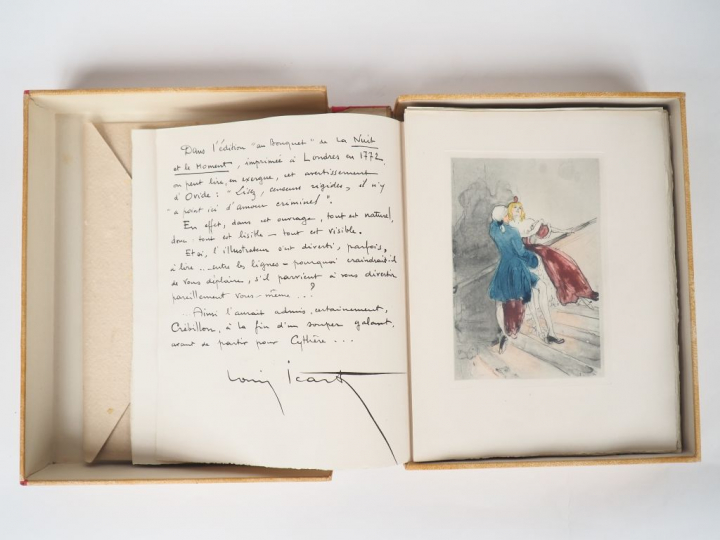 Dans l'édition "au Bouquet" de La Nuit
et le Moment, imprimée à Londres en 1772,
on peut lire, en exergue, cet avertissement
d'Ovide : "Lisez, censeurs rigides, il n'y
"a point ici d'amour criminel".
En effet, dans cet ouvrage, tout est naturel,
donc tout est lisible – tout est visible.
Et si, l'illustrateur s'est diverti, parfois,
à lire... entre les lignes – pourquoi craindrait-il
de vous déplaire, s'il parvient à vous divertir
pareillement vous-même...?
... Ainsi l'aurait admis, certainement,
Crébillon, à la fin d'un souper galant,
avant de partir pour Cythère...
Louis Icart